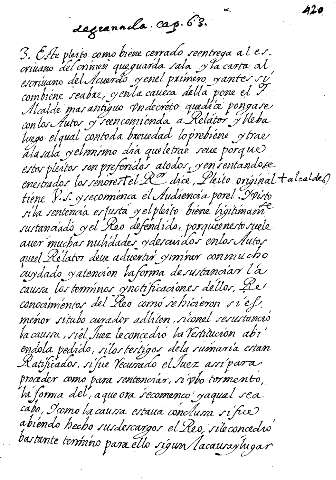 420
de granada. cap. 63.
3. Este pleito como biene cerrado se entrega al es
criuano del crimen que guarda sala y la carta al
escriuano del Acuerdo, y en el primero, y antes si
combiene se abre, y en la caueza della pone el
Alcalde mas antiguo vn decreto que dice pongase
con los Autos y se encomienda a Relator y lleba
luego el qual con toda breuedad lo prebiene y trae
a la sala y el mismo dia que le trae se ve porque
estos pleitos son preferidos a todos, y en sentandose
en estrados los señores el Rr. dice, Pleito original + alcaldes
tiene V.S. y se comienca el Audiencia por el
si la sentencia es justa y el pleito biene legitimam
sustanciado y el Reo defendido, porque en esto suele
auer muchas nulidades y descuidos en los Autos
que el Relator deve aduertir y mirar con mucho
cuydado y atencion la forma de sustanciar la
causa los terminos y notificaciones dellos, Re
conocimientos del Reo como se hicieron si es
menor si tubo curador ad litem, si con el se sustancio
la causa, si el Juez le concedio la restitucion abi
endola pedido, si los testigos de la sumaria estan
Ratificados, si fue recusado el Juez assi para
proceder como para sentenciar, si vbo tormento,
la forma del, a que ora se comenco y a qual se a
cabo, y como la causa estaua conclusa si fue
abiendo hecho sus descargos el Reo, si le concedio
bastante termino para ello segun la causa y lugar